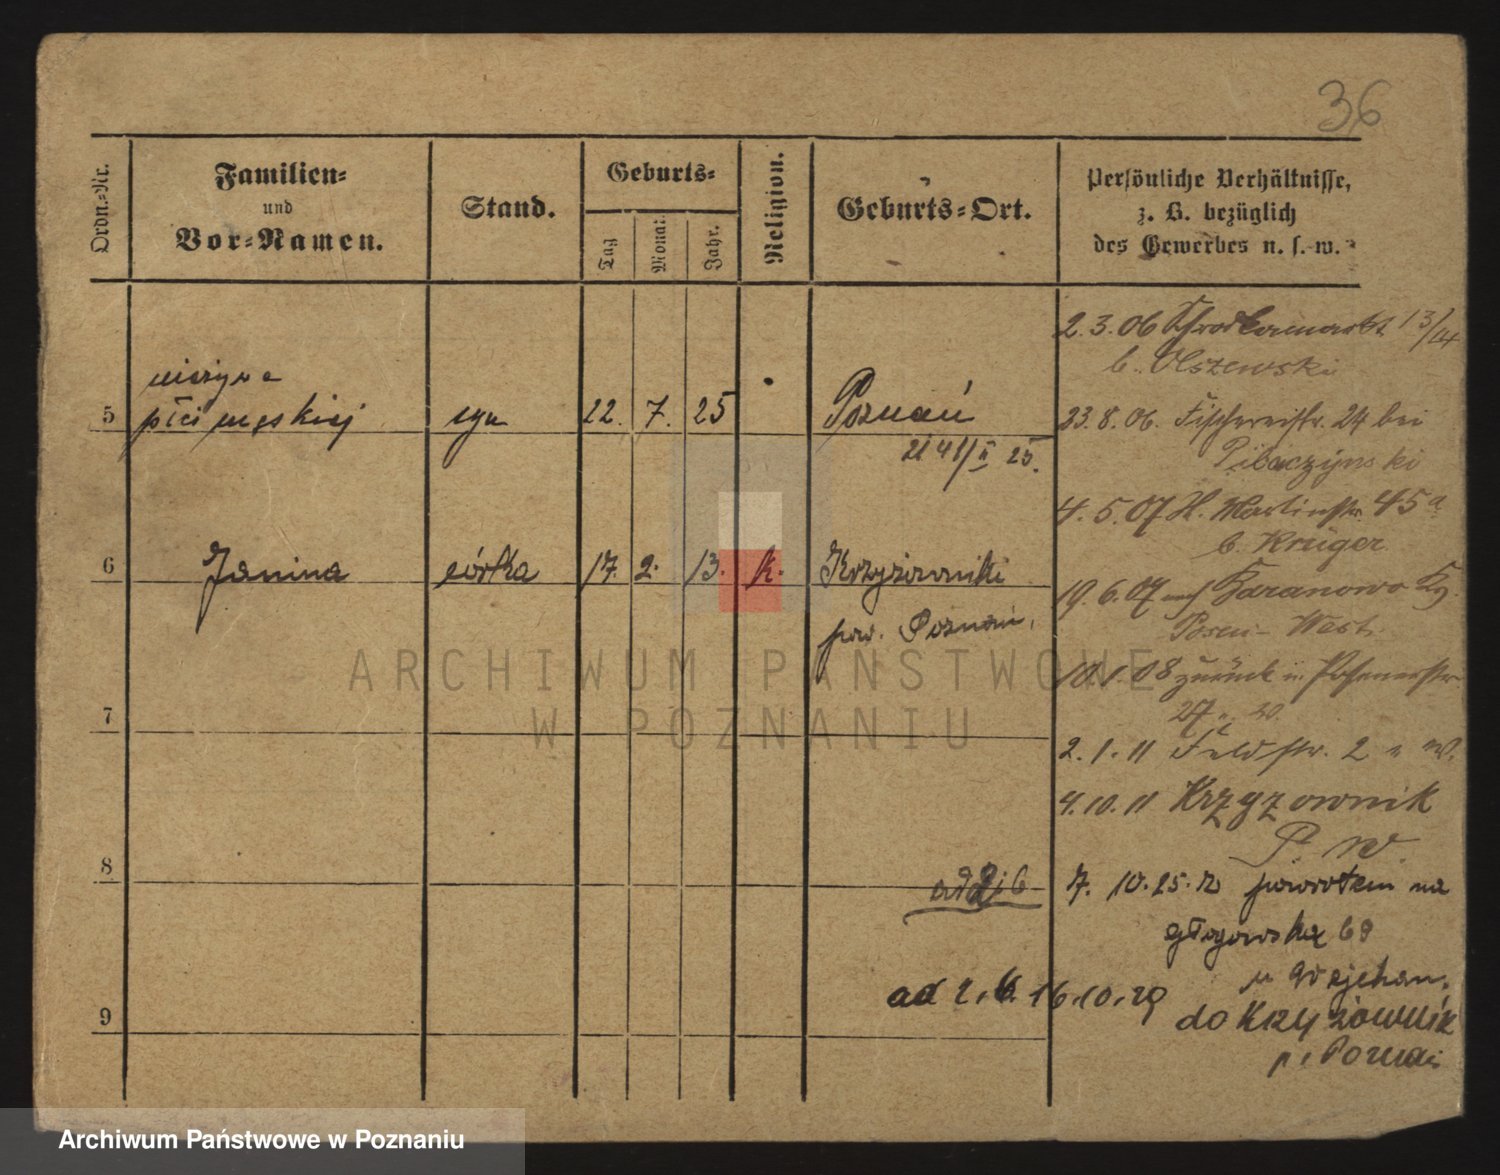 36
Ordn.-Nr.
Familien-
und
Vor-Namen.
Stand.
Geburts-
Tag
Monat
Jahr.
Religion.
Geburts-Ort.
Persönliche Verhältnisse,
z. B. bezüglich
des Gewerbes u. s. w.
2.3.06 13/14
b. Olszewski
5 płci męskiej syn 22. 7. 25 Poznań
2141/II 25.
23.8.06. Fischereistr. 24 bei
4.5.07 St. Martinstr. 45a
b. Krüger
6 Janina córka 17. 2. 13. k. Krzyżowniki
pow. Poznań.
19.6.07 nach Baranowo
Posen-West.
10.1.08 zurück in
27
7
2.1.11 Feldstr. 2 n W.
4.10.11 Krzyzownik
P. W.
8
ad 2i6
7. 10.25. z powrotem na
głogowska 69
u Wojchan.
9
ad 2.6. 16.10.29 do Krzyżownik
p. Poznań
ARCHIWUM PAŃSTWOWE
W POZNANIU
Archiwum Państwowe w Poznaniu